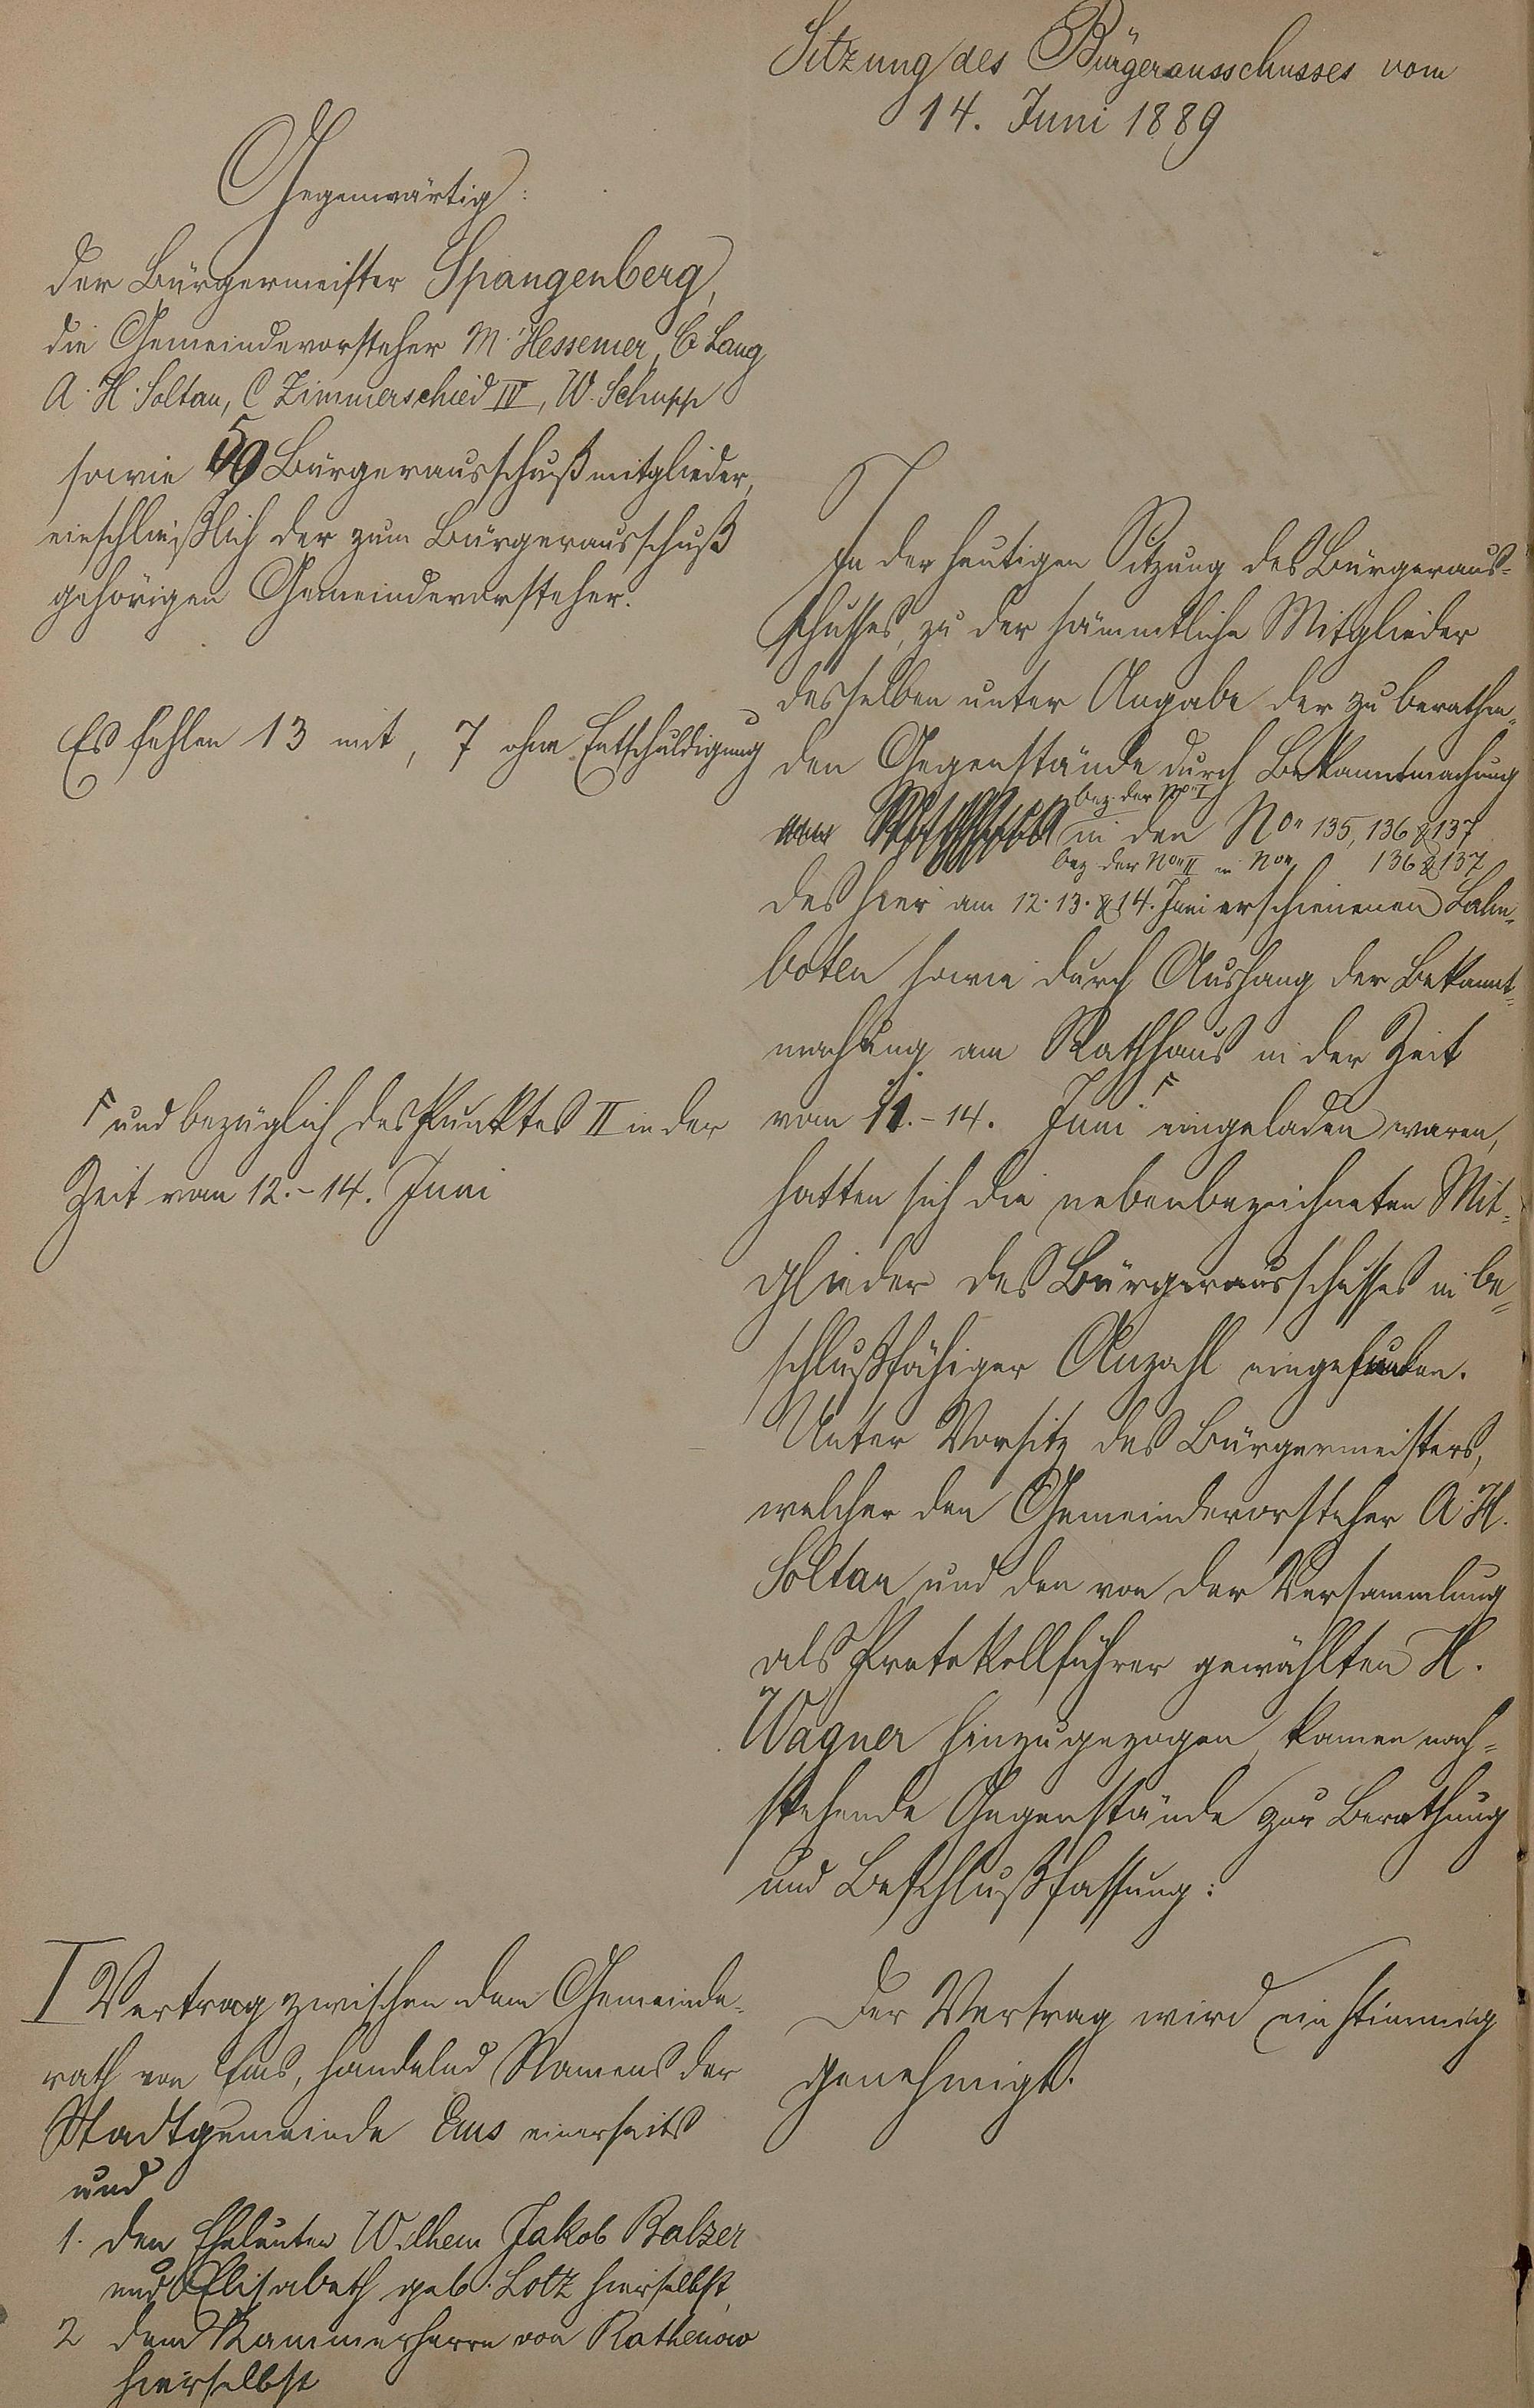 Sitzung des Bürgerausschusses vom
14. Juni 1889
Gegenwärtig:
der Bürgermeister Spangenberg,
die Gemeindevorsteher M. Hessemer, C Lang
A. H. Soltau, C Zimmerschied IV, W. Schupp
sowie 59 Bürgerausschußmitglieder,
einschließlich der zum Bürgerausschuß
gehörigen Gemeindevorsteher.
Es fehlen 13 mit, 7 ohne Entschuldigung
In der heutigen Sitzung des Bürgeraus-
schusses, zu der sämmtliche Mitglieder
desselben unter Angabe der zu berathen-
den Gegenstände durch Bekanntmachung
bez. der No I
in den Non 135, 136 & 137
bez der Non II in Non 136 & 137
des hier am 12. 13. & 14. Juni erschienenen Lahn-
boten sowie durch Aushang der Bekannt-
machung am Rathhaus in der Zeit
vom 11.-14. Juni ┌ eingeladen waren,
┌ und bezüglich des Punktes II in der
Zeit vom 12.-14. Juni
hatten sich die nebenbezeichneten Mit-
glieder des Bürgerausschusses in be-
schlußfähiger Anzahl eingefunden.
Unter Vorsitz des Bürgermeisters,
welcher den Gemeindevorsteher A. H.
Soltau und den von der Versammlung
als Protokollführer gewählten H.
Wagner hinzugezogen, kamen nach-
stehende Gegenstände zur Berathung
und Beschlußfassung:
I Vertrag zwischen dem Gemeinde-
rath von Ems, handelnd Namens der
Stadtgemeinde Ems einerseits
und
1. den Eheleuten Wilhem Jakob Balzer
und Elisabeth geb. Lotz hierselbst,
2 dem Kammerherrn von Rathenow
hierselbst
Der Vertrag wird einstimmig
genehmigt.